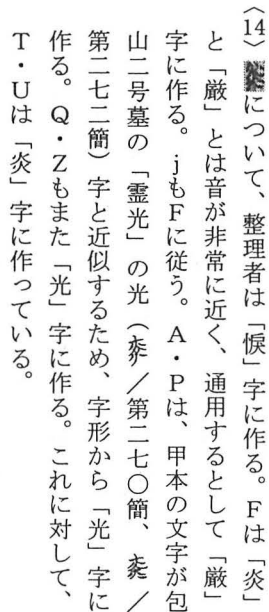 〈14〉について、整理者は「悷」字に作る。Fは「炎」
と「厳」とは音が非常に近く、通用するとして「厳」
字に作る。jもFに従う。A・Pは、甲本の文字が包
山二号墓の「霊光」の光（／第二七〇簡、／
第二七二簡）字と近似するため、字形から「光」字に
作る。Q・Zもまた「光」字に作る。これに対して、
T・Uは「炎」字に作っている。